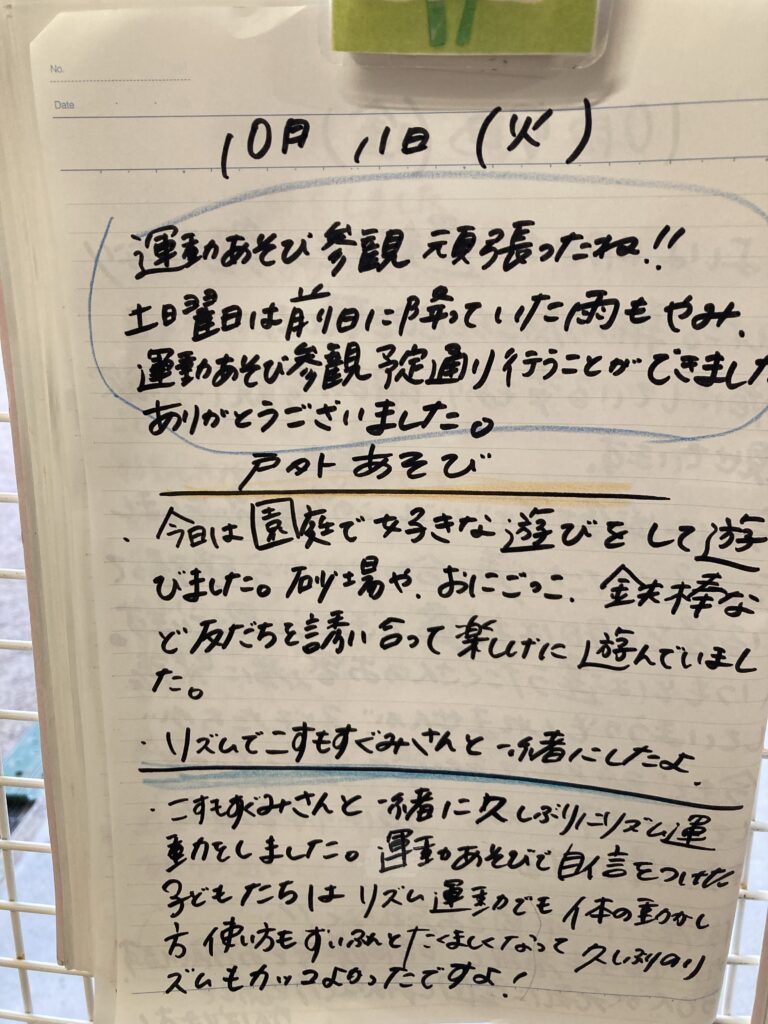 No.
Date
10月 11日 (火)
運動あそび参観 頑張ったね!!
土曜日は前日に降っていた雨もやみ、
運動あそび参観予定通り行うことができました
ありがとうございました。
戸外あそび
・今日は園庭で好きな遊びをして遊
びました。砂場や、おにごっこ、鉄棒な
ど友だちを誘い合って楽しげに遊んでいまし
た。
・リズムでこすもすぐみさんと一緒にしたよ.
・こすもすぐみさんと一緒に久しぶりにリズム運
動をしました。運動あそびで自信をつけた
子どもたちはリズム運動でも体の動かし
方 使い方もずいぶんとたくましくなって久しぶりのリ
ズムもカッコよかったですよ!